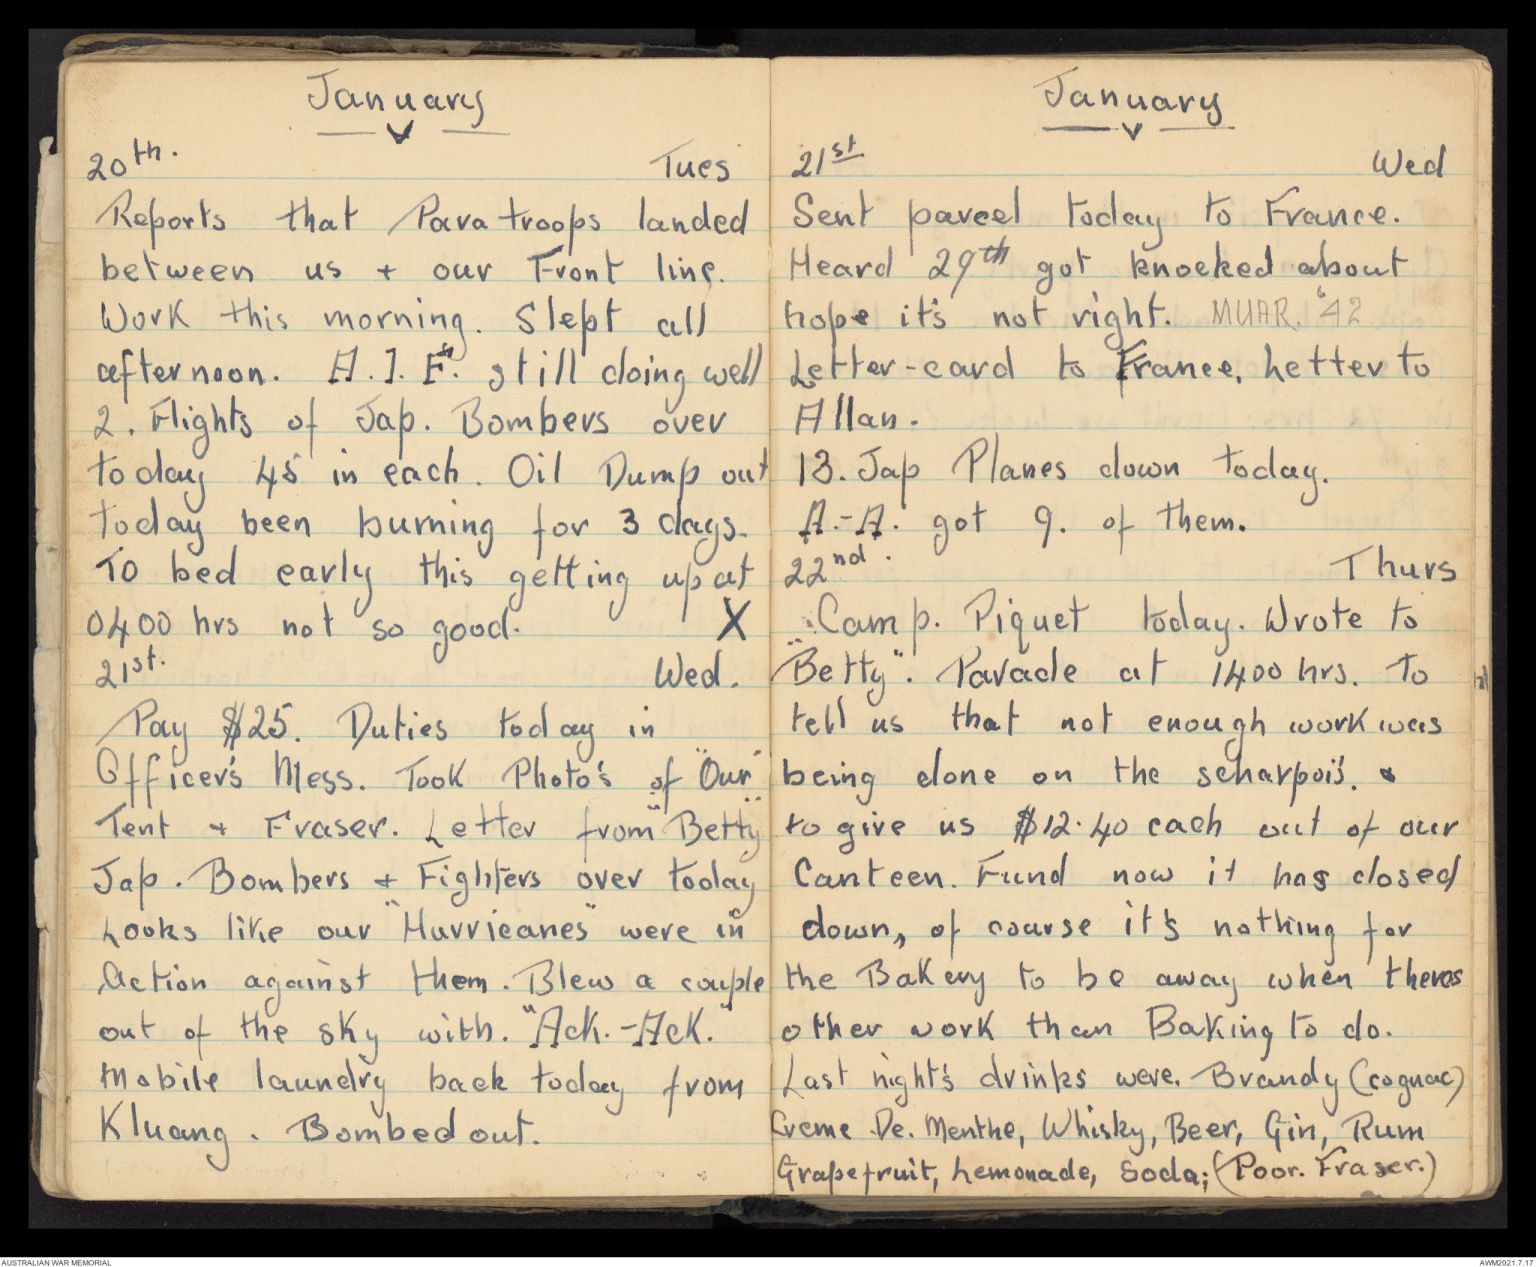 January
20th. Tues
Reports that Paratroops landed
between us + our Front line.
Work this morning. Slept all
afternoon. A.I.F.'s still doing well
2. Flights of Jap. Bombers over
today 45 in each. Oil Dump out
today been burning for 3 days.
To bed early this getting up at
0400 hrs not so good. X
21st. Wed.
Pay $25. Duties today in
Officer's Mess. Took Photo's of "Our"
Tent + Fraser. Letter from "Betty"
Jap. Bombers + Fighters over today
Looks like our "Hurricanes" were in
Action against them. Blew a couple
out of the sky with. "Ack.-Ack."
Mobile laundry back today from
Kluang. Bombed out.
January
21st Wed
Sent parcel today to France.
Heard 29th got knocked about
hope it's not right. MUAR. '42
Letter-card to France, Letter to
Allan.
13. Jap Planes down today.
A.-A. got 9. of them.
22nd. Thurs
Camp. Piquet today. Wrote to
"Betty". Parade at 1400 hrs. To
tell us that not enough work was
being done on the scharpoi's. &
to give us $12.40 each out of our
Canteen. Fund now it has closed
down, of course it's nothing for
the Bakery to be away when theres
other work than Baking to do.
Last night's drinks were. Brandy (cognac)
Creme De. Menthe, Whisky, Beer, Gin, Rum
Grapefruit, Lemonade, Soda; (Poor. Fraser.)
AUSTRALIAN WAR MEMORIAL
AWM2021.7.17